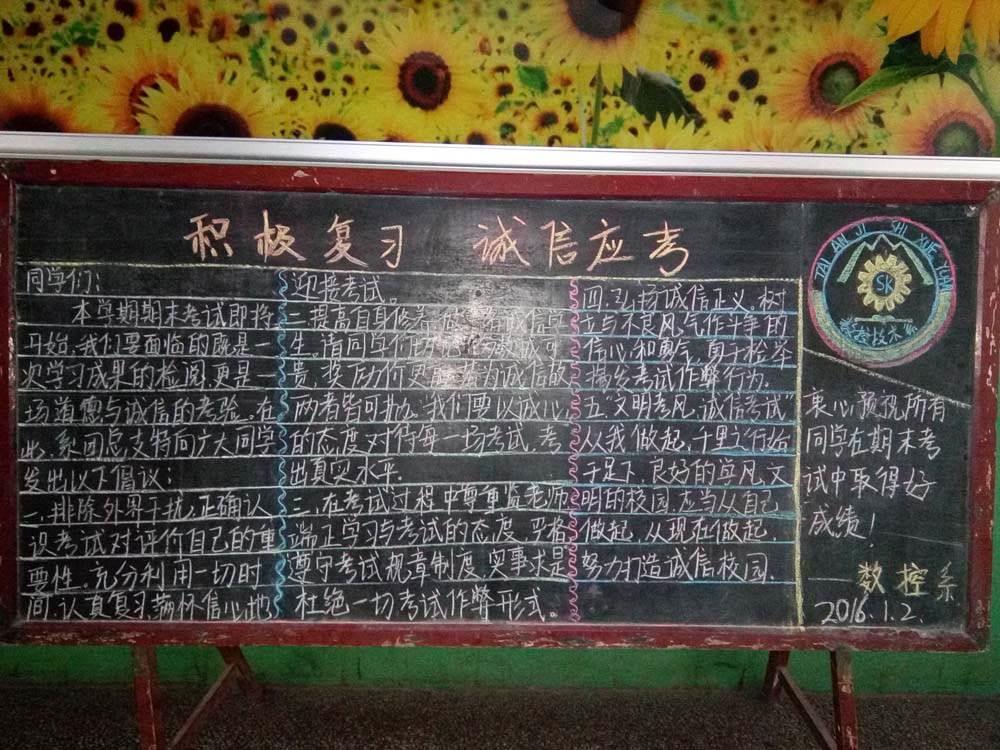 积极复习 诚信应考
同学们：
本学期期末考试即将
开始,我们要面临的既是一
次学习成果的检阅,更是一
场道德与诚信的考验。在
此,系团总支特向广大同学
发出以下倡议：
一.排除外界干扰,正确认
识考试对评价自己的重
要性,充分利用一切时
间,认真复习,满怀信心地
迎接考试。
二.提高自身修养,做诚信学
生。请同学们
贵,奖励何更
两者皆可抛。我们要以诚心
的态度对待每一场考试,考
出真实水平.
三.在考试过程中尊重监考老师
端正学习与考试的态度,严格
遵守考试规章制度,实事求是
杜绝一切考试作弊形式。
四.弘扬诚信正义。树
立与不良风气作斗争的
信心和勇气,勇于检举
揭发考试作弊行为.
五"文明考风,诚信考试"
从我做起,千里之行始
于足下.良好的学风,文
明的校园,应当从自己
做起,从现在做起
努力打造诚信校园.
SK
衷心预祝所有
同学在期末考
试中取得好
成绩!
——数控系
2016.1.2.